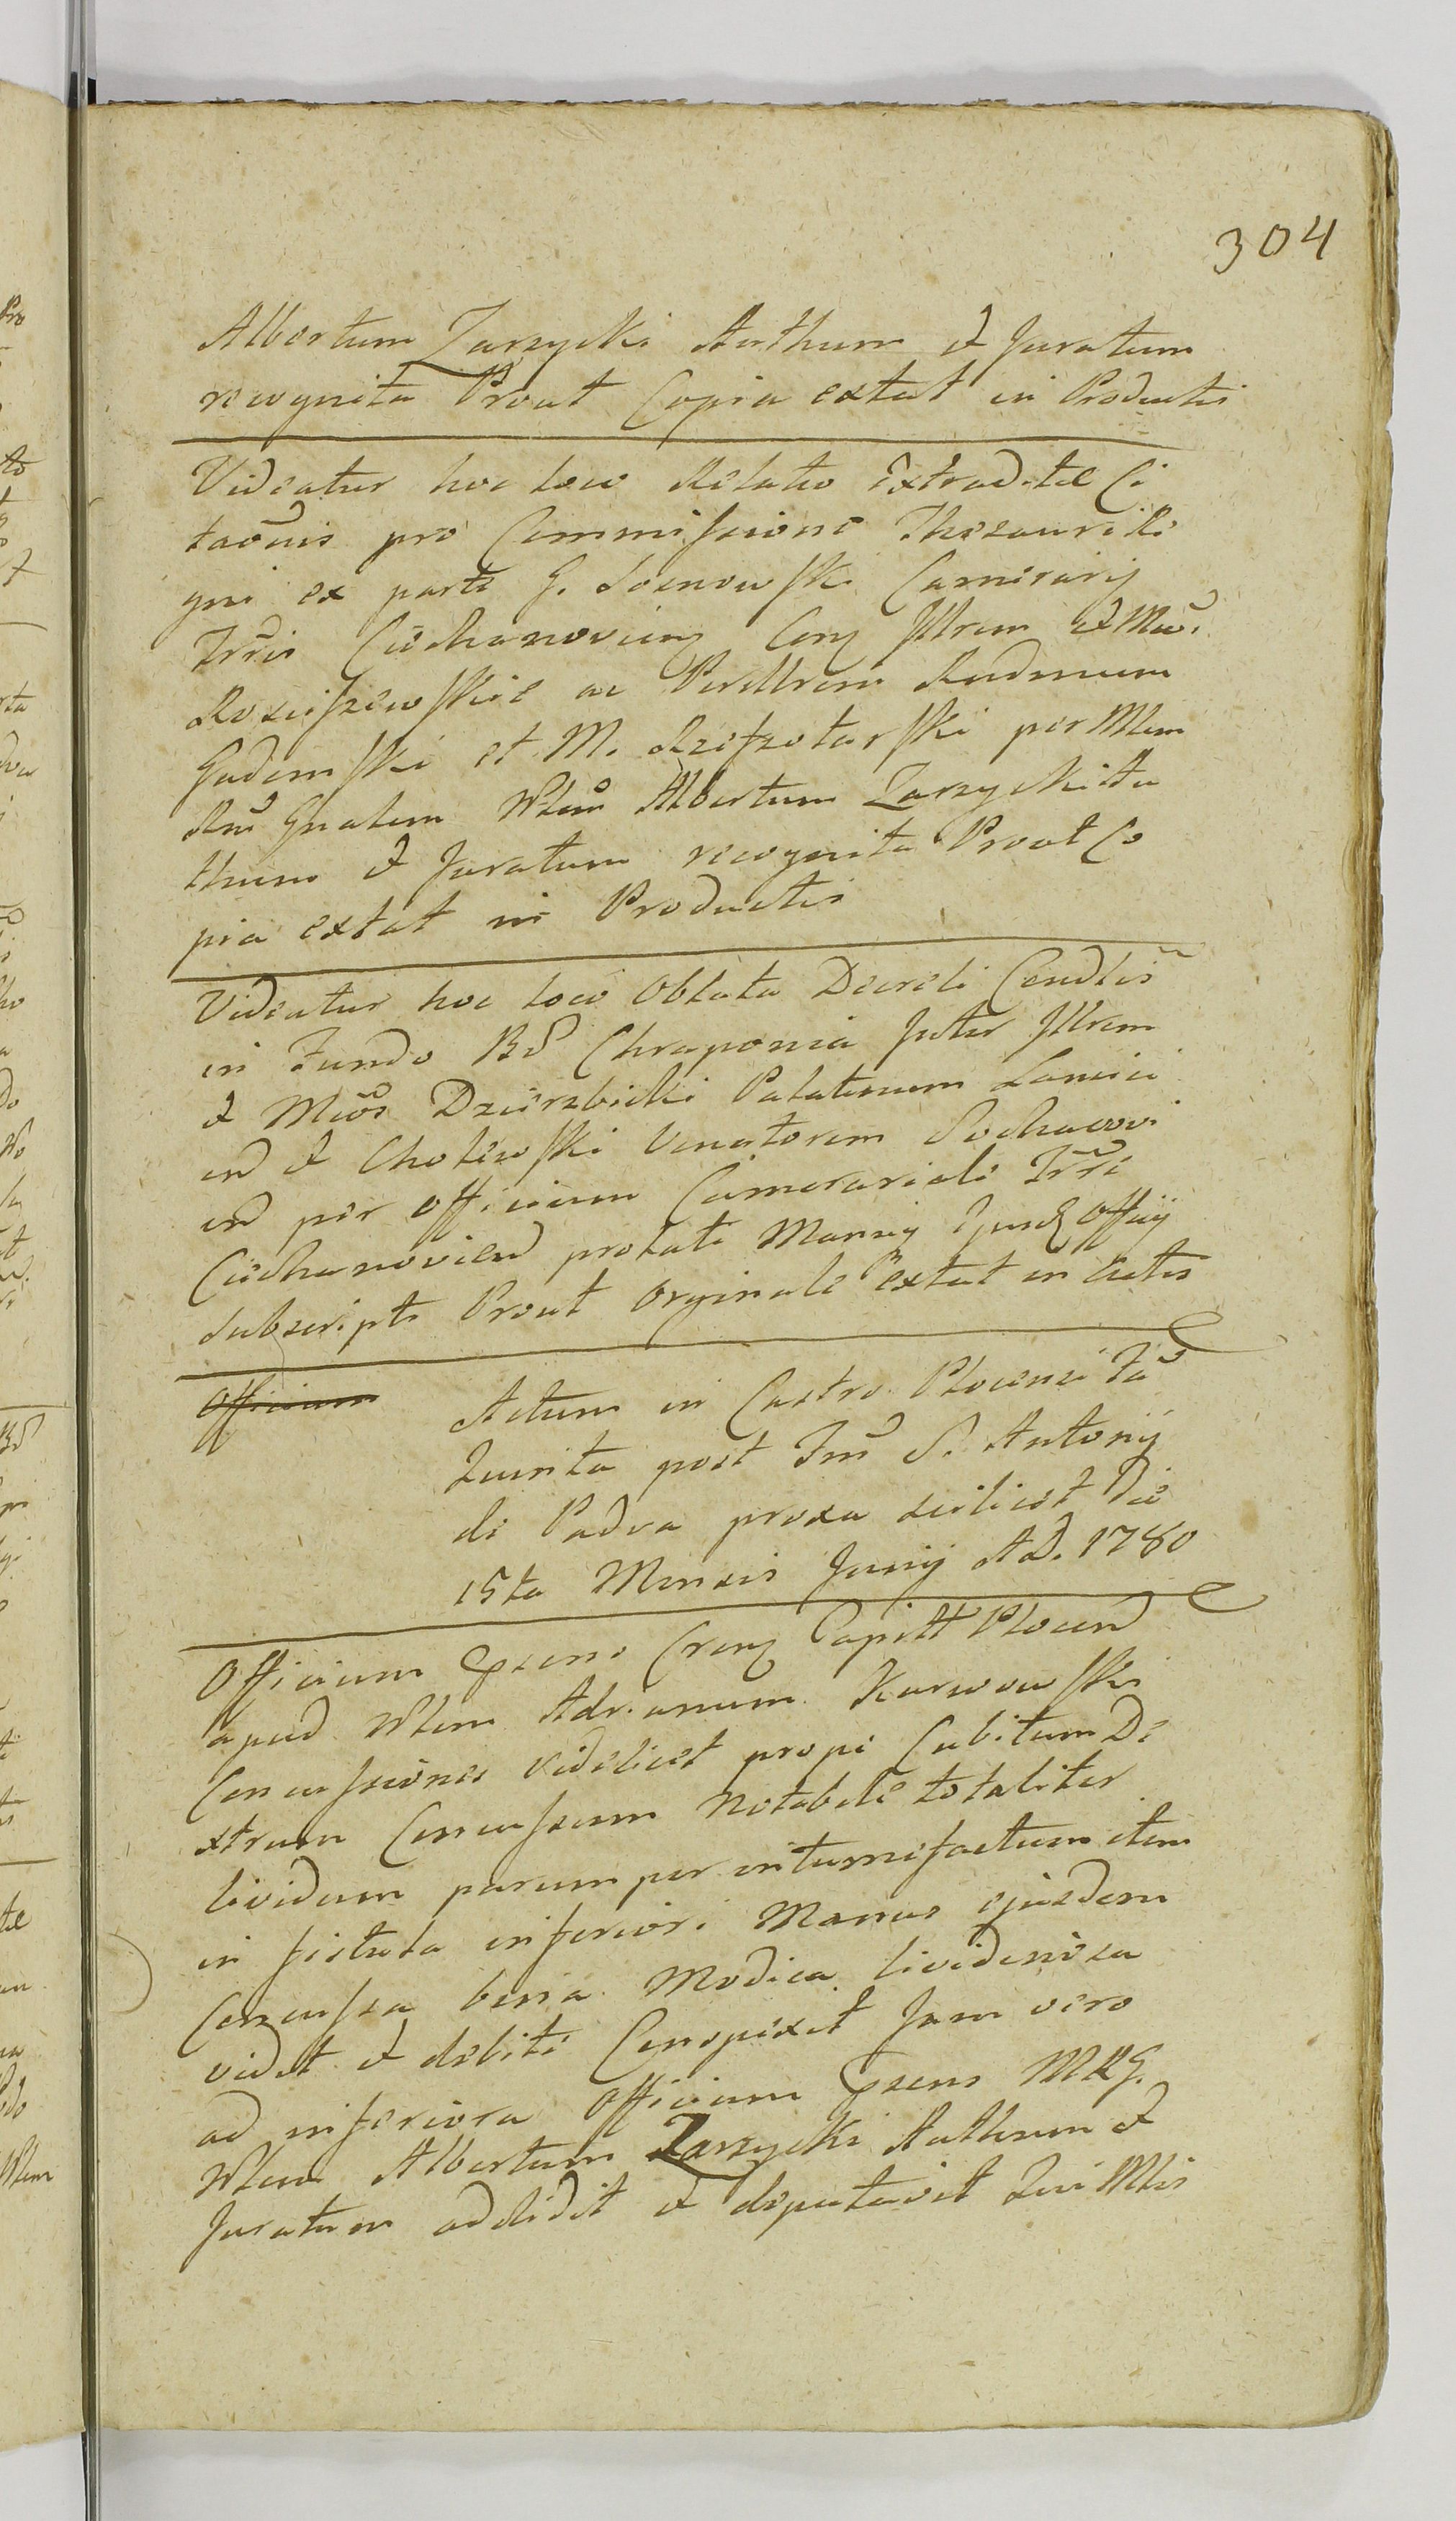 304
Albertum Zarzycki Authum et Juratum
recognita Prout Copia extat in Productis
Videatur hoc loco Relatio Extraditæ Ci
taõnis pro Commissione Thesauri Re
gni ex parte G. Sosnowski Camerarij
Trr̃is Ciechanovien Con Illrem et Mcũ.
Rosciszewskie ac Perillrem Rndmum
Gadomski et M. Rzeszotarski per Mlem
Rni Gnalem Wlem Albertum Zarzycki Au
thum et Juratum recognita Prout Co
pia extat in Productis
Videatur hoc loco Oblata Decreti Condlis
in Fundo Bo Chraponia Inter Illrem
et Mcõs Dzierzbicki Palatinum Lancici
en et Cholewski Venatorem Sochacovi
en per Officium Camerariale Trr̃e
Ciechanovien prolati Manu ejusd Offij
Subscripti Prout Orginale extat in Actis
Officium
Actum in Castro Plocensi Fa
Quinta post Fm S. Antonij
de Padva proxa scilicet Die
15ta Mensis Junij A.D. 1780
Officium Psens Cren Capitt Plocen
apud Wlem Adrianum Karwowski
Concussiones videlicet prope Cubitum De
xtrum Concussum notabile totaliter
lividum parumper intumefactum item
in fistula inferiori Manus ejusdem
Concussa bina Modica lividinosa
vidit et debite Conspexit Jam vero
ad inferiora Officium Psens MRG.
Wlem Albertum Zarzycki Authum et
Juratum addidit et deputavit Qui Mlis